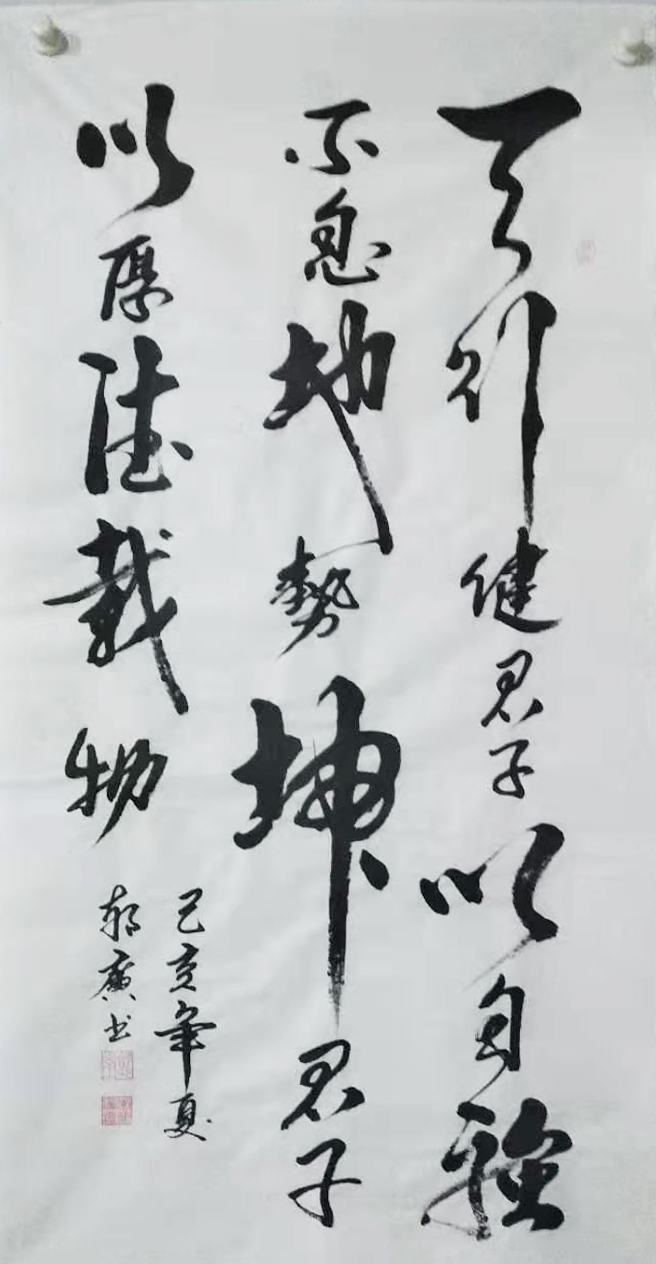 天行健君子以自强
不息地勢坤君子
以厚德載物
己亥年夏
廣书